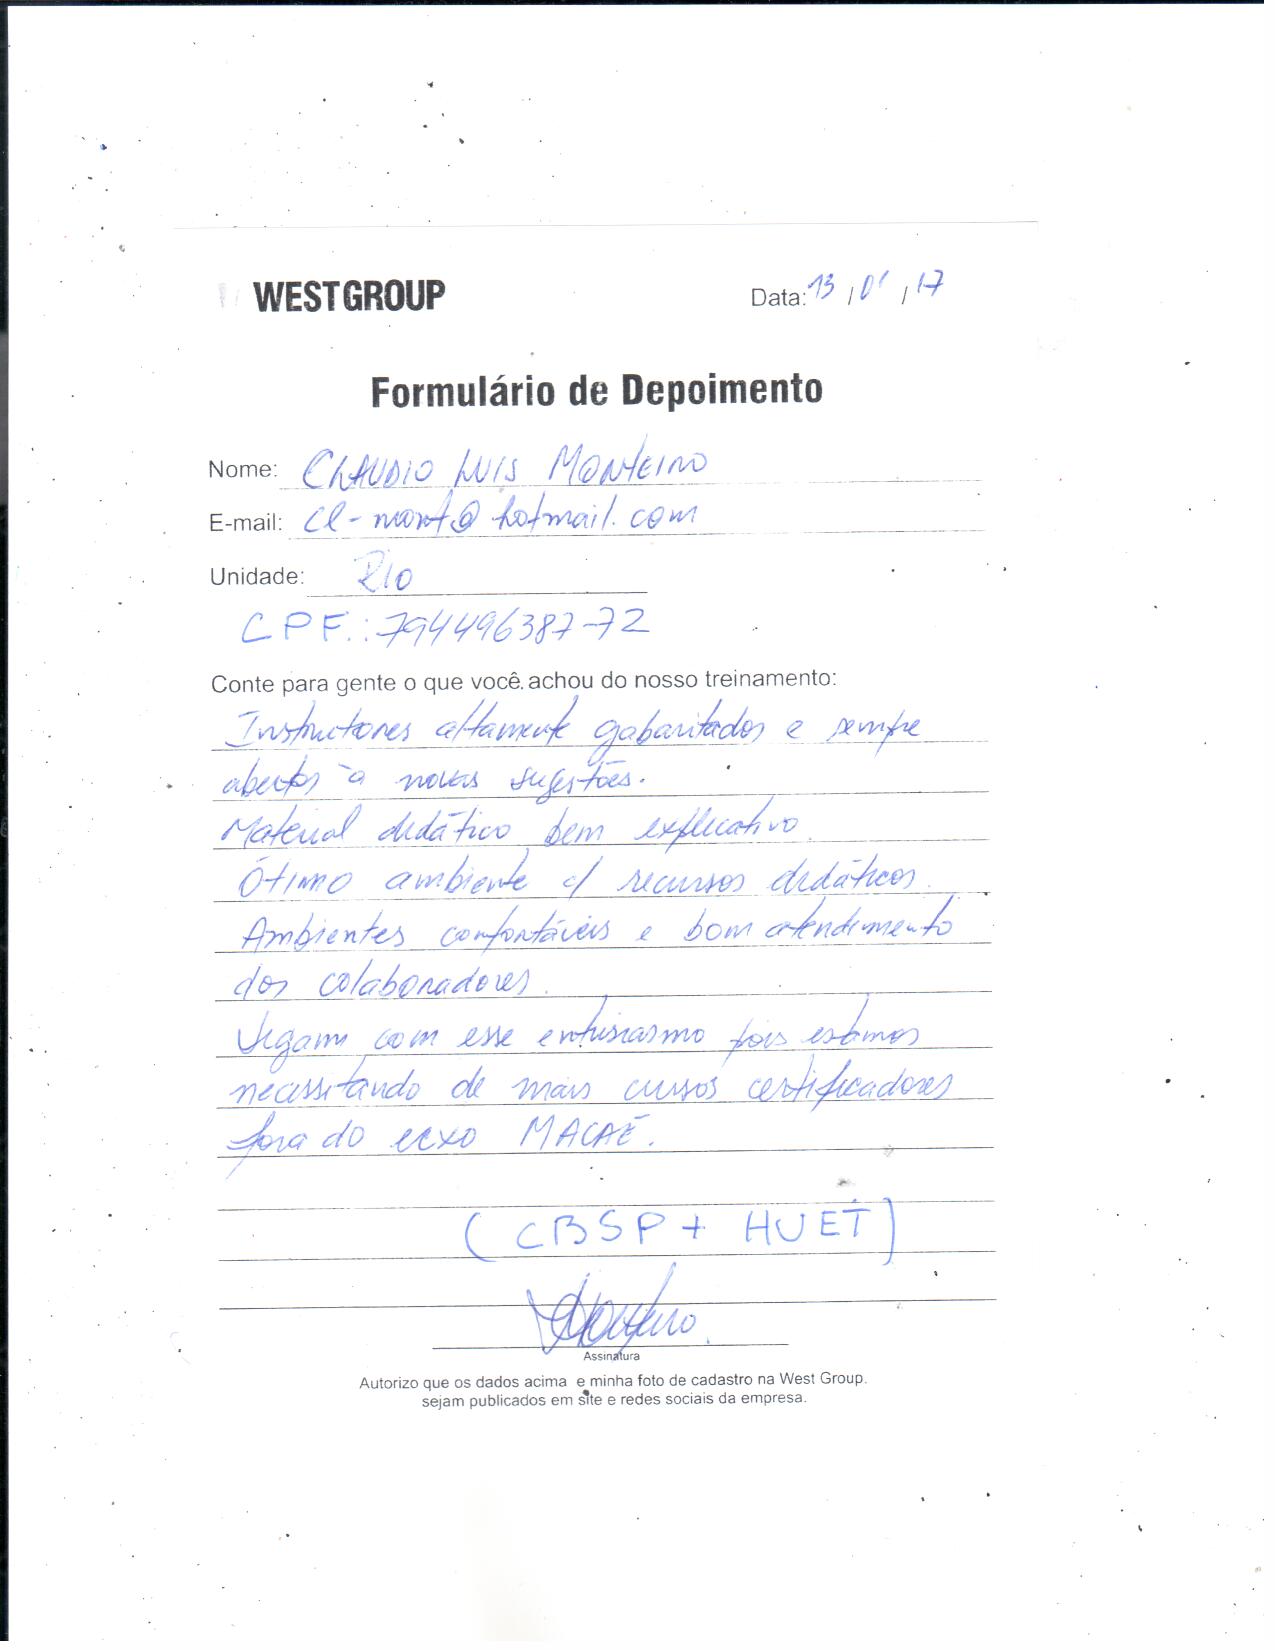 WEST GROUP
Data: 13 / 01 / 17
Formulário de Depoimento
Nome: CLAUDIO LUIS MONTEIRO
E-mail: cl-mont@hotmail.com
Unidade: RIO
CPF.: 794496387-72
Conte para gente o que você achou do nosso treinamento:
Instructores altamente gabaritados e sempre
abertos à novas sugestões.
Material didático bem explicativo.
Ótimo ambiente c/ recursos didáticos.
Ambientes confortáveis e bom atendimento
dos colaboradores.
Sigam com esse entusiasmo pois estamos
necessitando de mais cursos certificadores
fora do eixo MACAÉ.
(CBSP + HUET)
Monteiro
Assinatura
Autorizo que os dados acima e minha foto de cadastro na West Group.
sejam publicados em site e redes sociais da empresa.